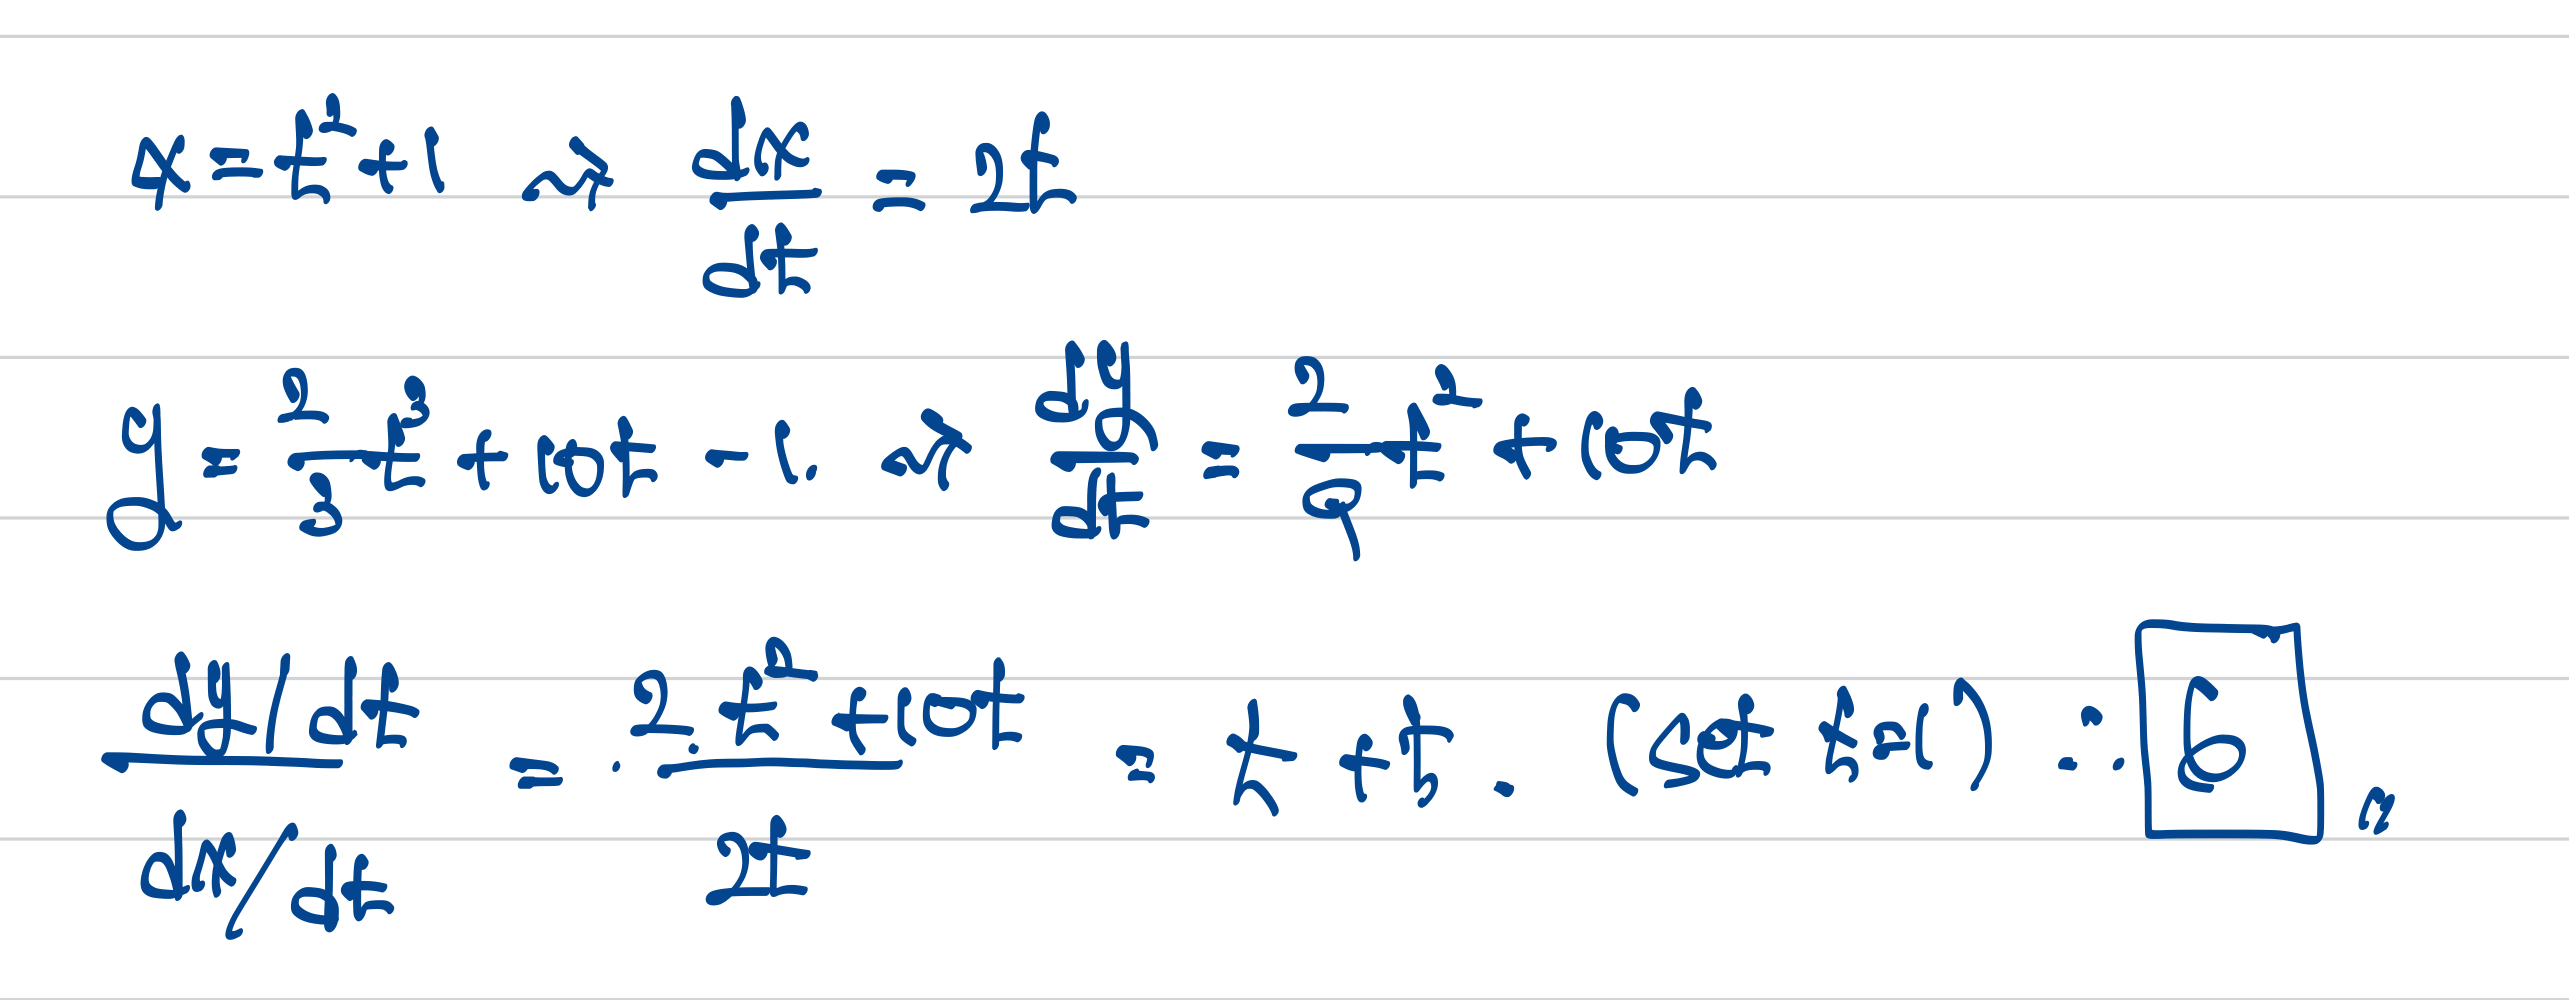 x = t² + 1 ⇝ dx/dt = 2t
y = 2/3 t³ + 10t - 1. ⇝ dy/dt = 2/9 t² + 10t
(dy/dt)/(dx/dt) = (2·t² + 10t)/(2t) = t + 5. (set t=1) ∴ 6 〃